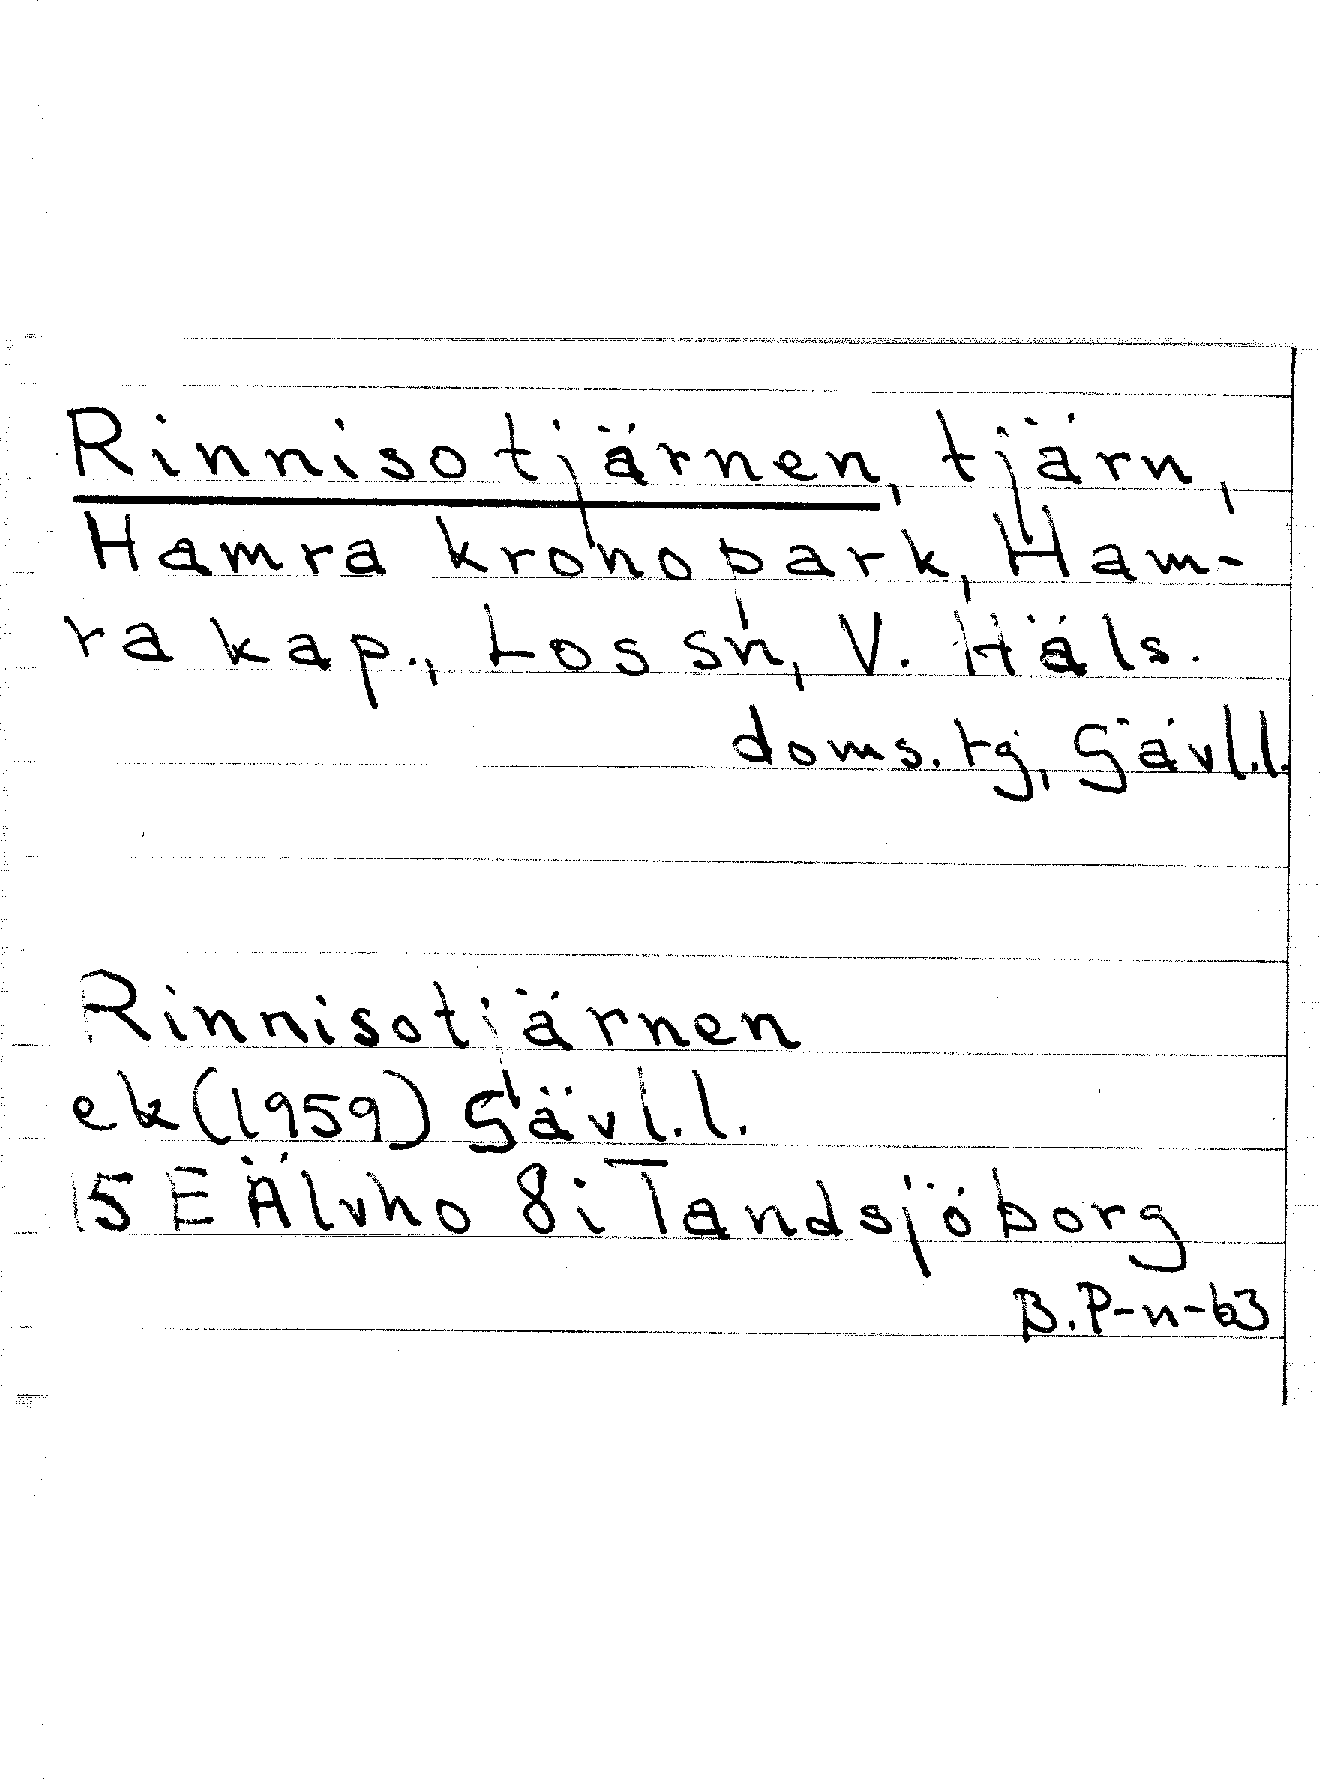 Rinnisotjärnen, tjärn,
Hamra kronopark, Ham-
ra kap., Los sn, V. Häls.
doms. tg, Gävl.l.
Rinnisotjärnen
ek (1959) Gävl.l.
15 E Älvho 8i Tandsjöborg
B.P-n-63